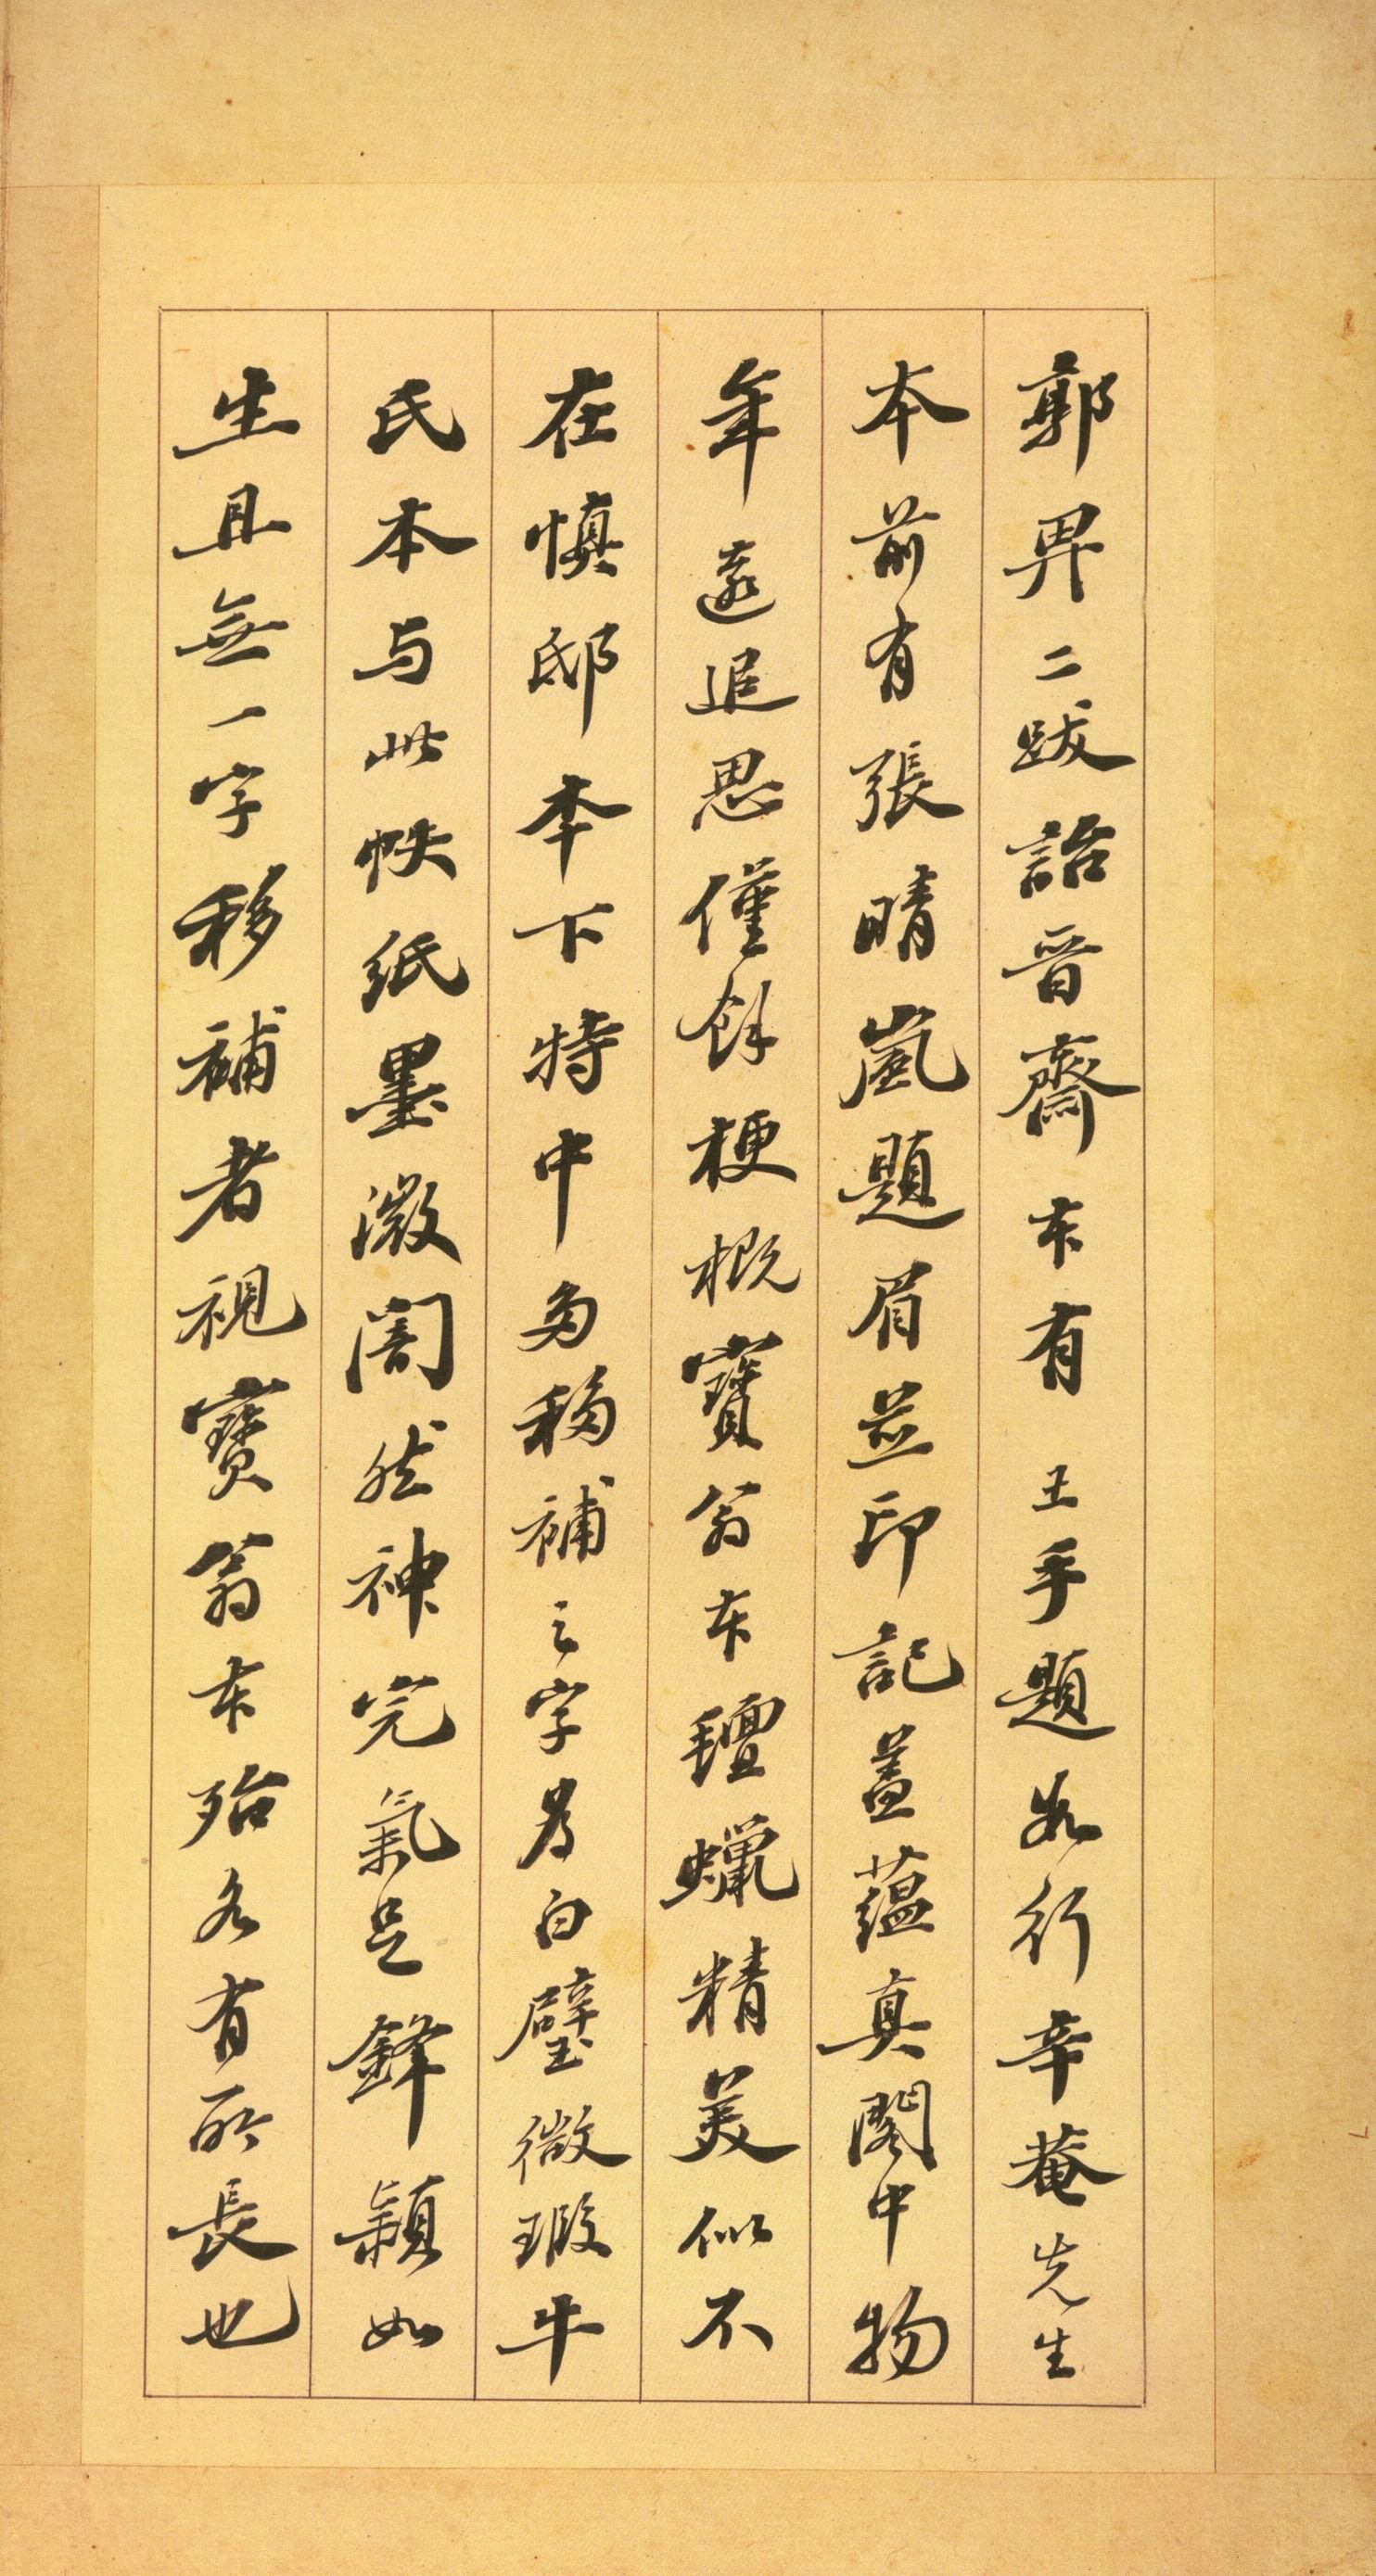 郭畀二跋詒晉齋本有王手題數行辛菴先生
本前有張晴嵐題眉並印記蓋蘊真閣中物
年遠追思僅餘梗概寶翁本氊蠟精美似不
在慎邸本下特中多移補之字為白璧微瑕牛
氏本与此帙紙墨澂闇然神完氣足鋒穎如
生且無一字移補者視寶翁本殆各有所長也